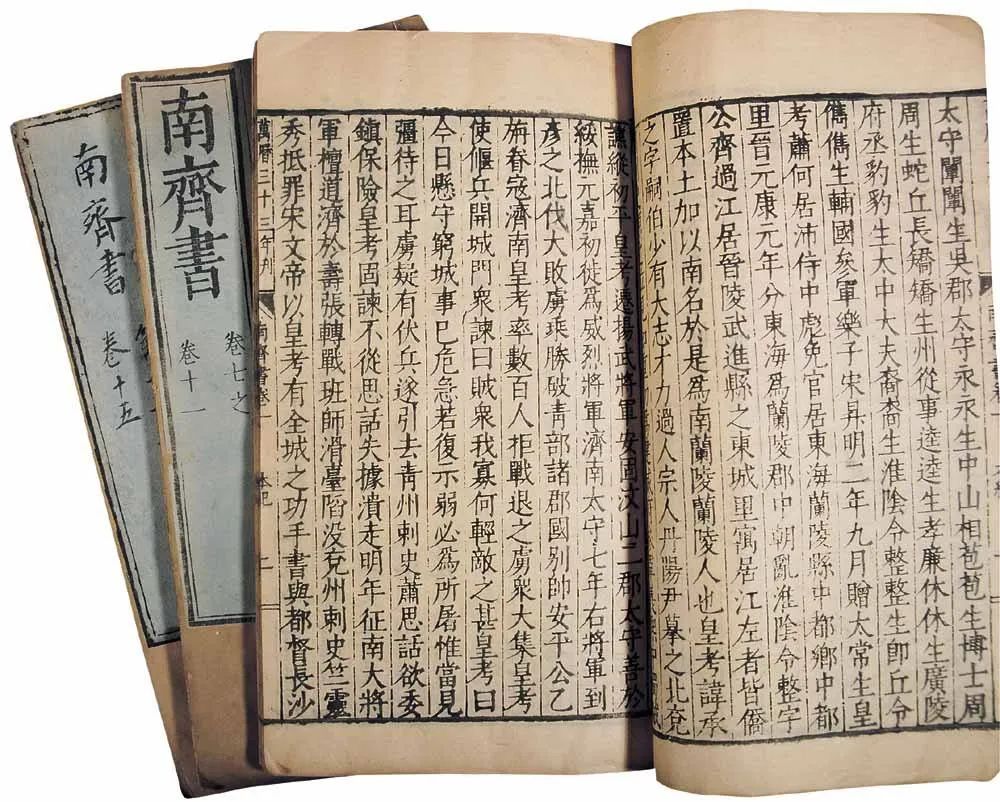 太守闡闡生吳郡太守永永生中山相苞苞生博士周
周生蛇丘長矯矯生州從事逵逵生孝廉休休生廣陵
府丞豹豹生太中大夫裔裔生淮陰令整整生即丘令
雋雋生輔國參軍樂子宋昇明二年九月贈太常生皇
考蕭何居沛侍中彪免官居東海蘭陵縣中都鄉中都
里晉元康元年分東海爲蘭陵郡中朝亂淮陰令整字
公齊過江居晉陵武進縣之東城里寓居江左者皆僑
置本土加以南名於是爲南蘭陵蘭陵人也皇考諱承
之字嗣伯少有大志才力過人宗人丹陽尹摹之北兗
譙縱初平皇考遷揚武將軍安固汶山二郡太守善於
綏撫元嘉初徙爲威烈將軍濟南太守七年右將軍到
彥之北伐大敗虜乘勝破青部諸郡國別帥安平公乙
旃眷寇濟南皇考率數百人拒戰退之虜衆大集皇考
使偃兵開城門衆諫曰賊衆我寡何輕敵之甚皇考曰
今日懸守窮城事已危急若復示弱必爲所屠惟當見
彊待之耳虜疑有伏兵遂引去青州刺史蕭思話欲委
鎮保險皇考固諫不從思話失據潰走明年征南大將
軍檀道濟於壽張轉戰班師滑臺陷没兗州刺史竺靈
秀抵罪宋文帝以皇考有全城之功手書與都督長沙
萬曆三十三年刊 南齊書卷一 本紀 二
南齊書
卷七之
卷十一
南齊書
卷十五